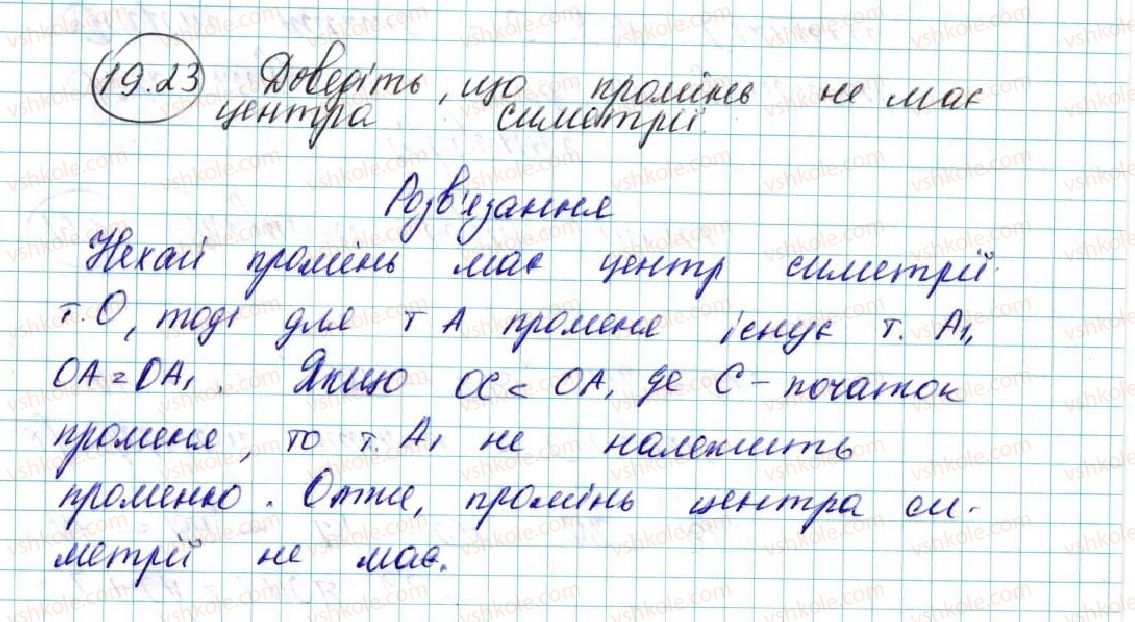 19.23 Доведіть, що промінь не має
центра симетрії.
Розв'язання
Нехай промінь має центр симетрії
т. О, тоді для т А променя існує т. А₁,
ОА = ОА₁. Якщо ОС < ОА, де С - початок
променя, то т. А₁ не належить
променю. Отже, промінь центра си-
метрії не має.